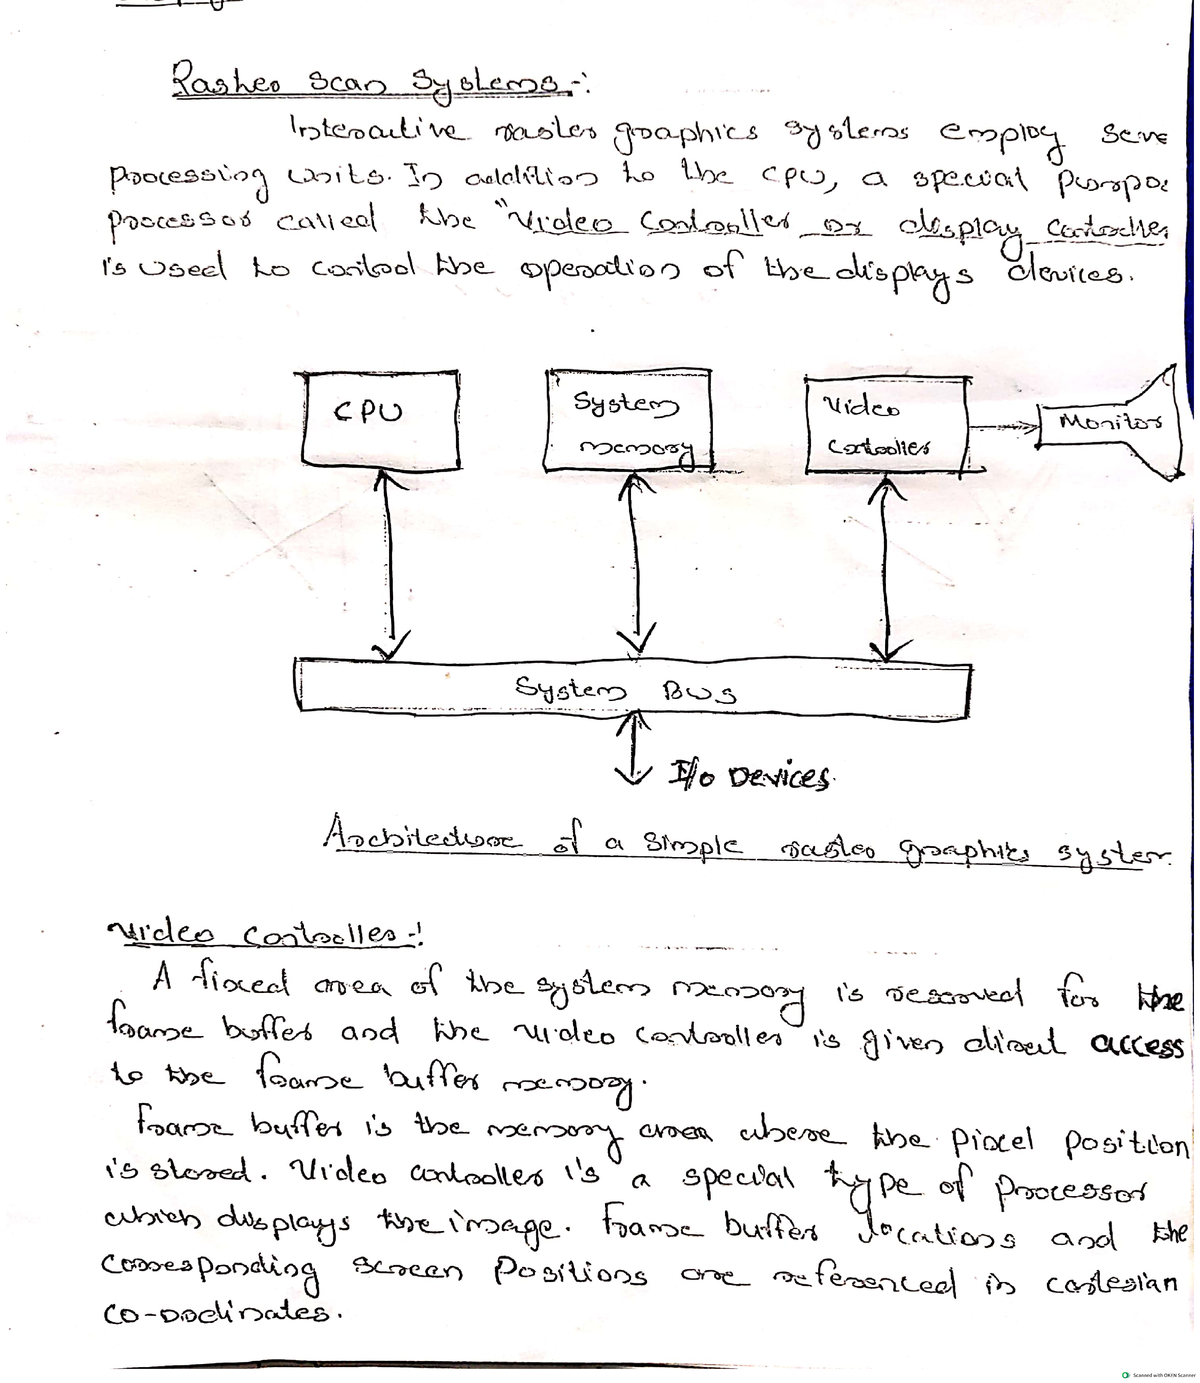 Raster Scan Systems:-
Interactive raster graphics systems employ seve
processing units. In addition to the CPU, a special purpose
processor called the "Video Controller or display controller
is used to control the operation of the displays devices.
CPU
System
memory
Video
Controller
Monitor
System BUS
I/O Devices.
Architecture of a simple raster graphics system.
Video Controller:-
A fixed area of the system memory is reserved for the
frame buffer and the video controller is given direct access
to the frame buffer memory.
Frame buffer is the memory area where the pixel position
is stored. Video controller is a special type of processor
which displays the image. Frame buffer locations and the
corresponding screen positions are referenced in cartesian
co-ordinates.
Scanned with OKEN Scanner